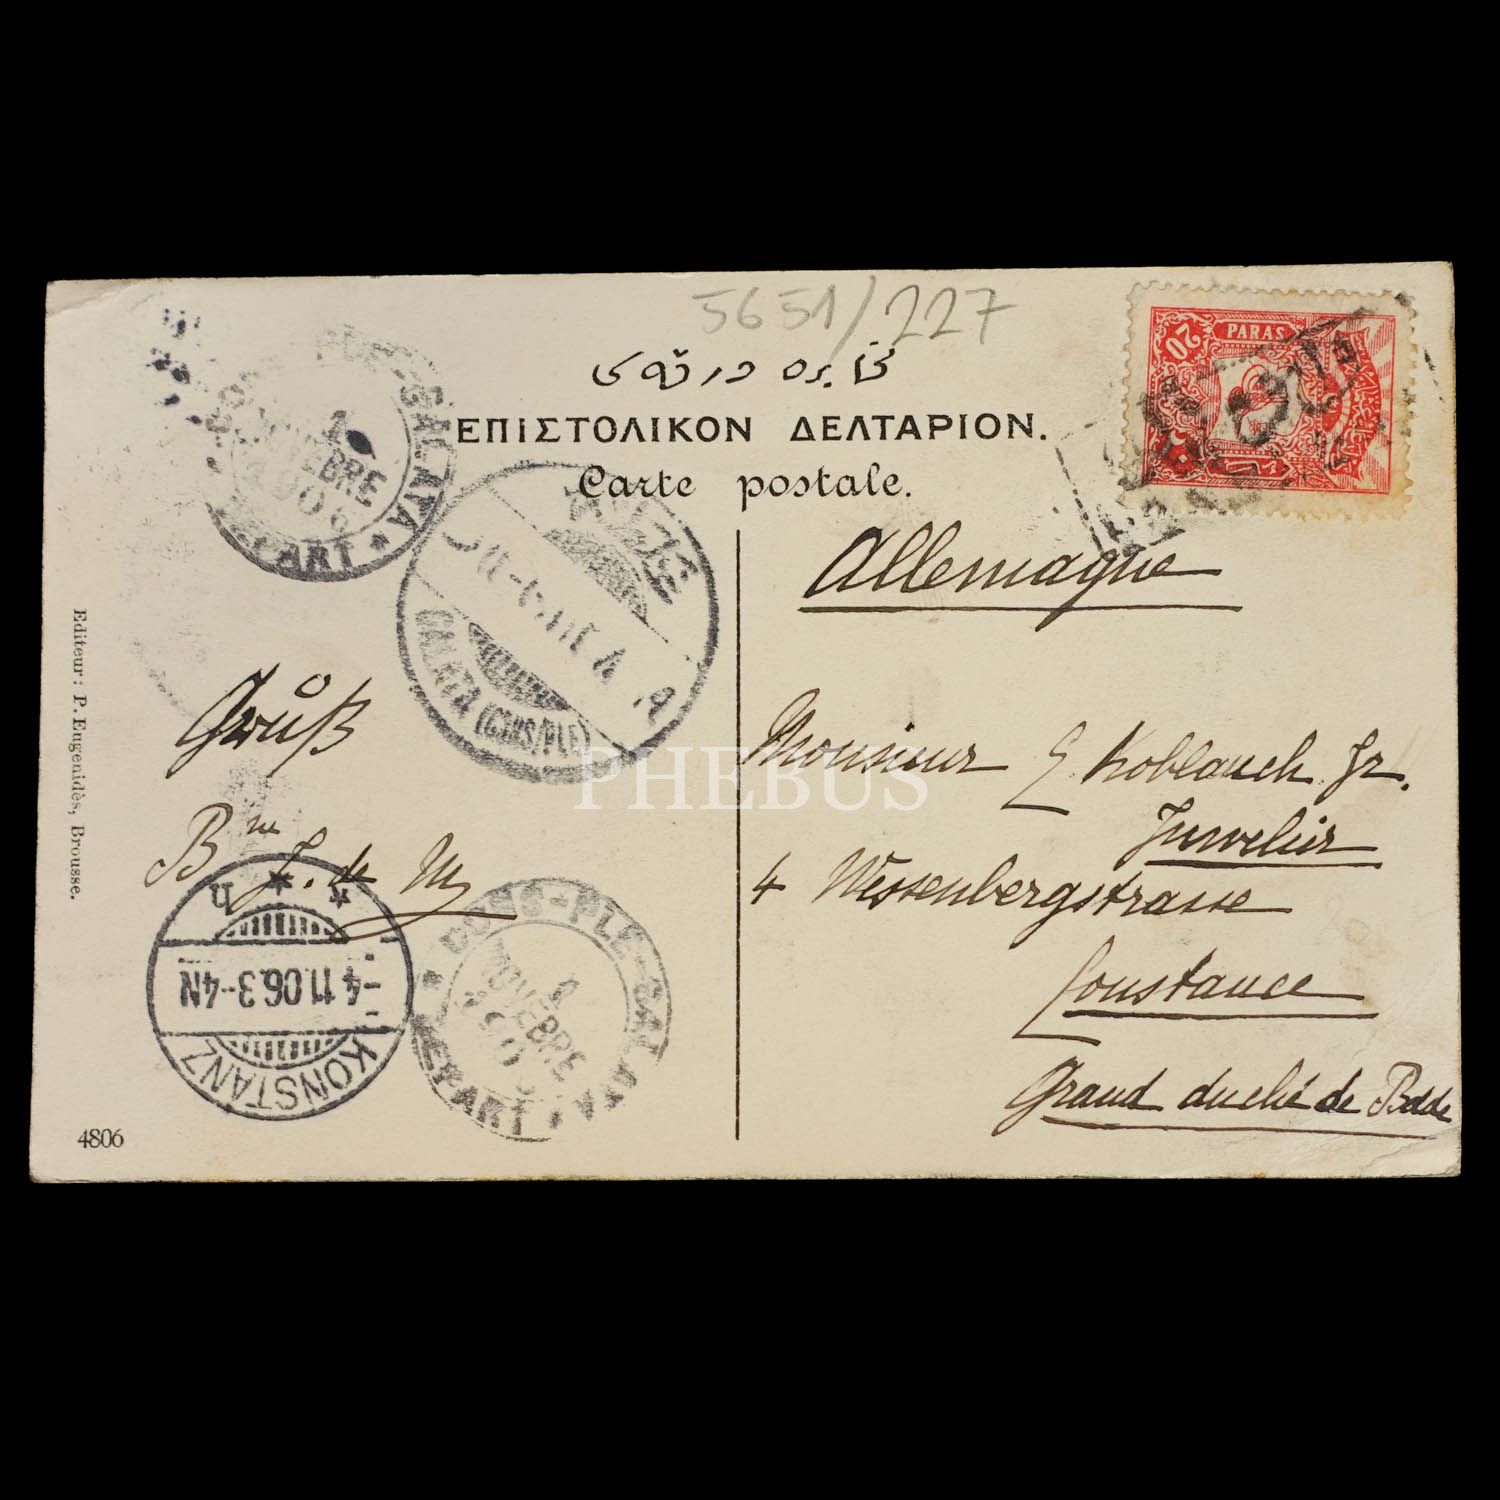 5651/227
مخابره ورقه سی
ΕΠΙΣΤΟΛΙΚΟΝ ΔΕΛΤΑΡΙΟΝ.
Carte postale.
20 PARAS
Allemagne
Monsieur E Koblauch Jr.
Juwelier
4 Wessenbergstrasse
Constance
Grand duché de Bade
Gruß
Bne J. de M
Editeur: P. Eugenidès, Brousse.
4806
GALATA (CONS/PLE)
CONS-PLE-GALATA
1
NOVEMBRE
190
DEPART
CONS-PLE-GALATA
1
NOVEMBRE
1906
DEPART
KONSTANZ
-4.11.06.3-4N
PHEBUS